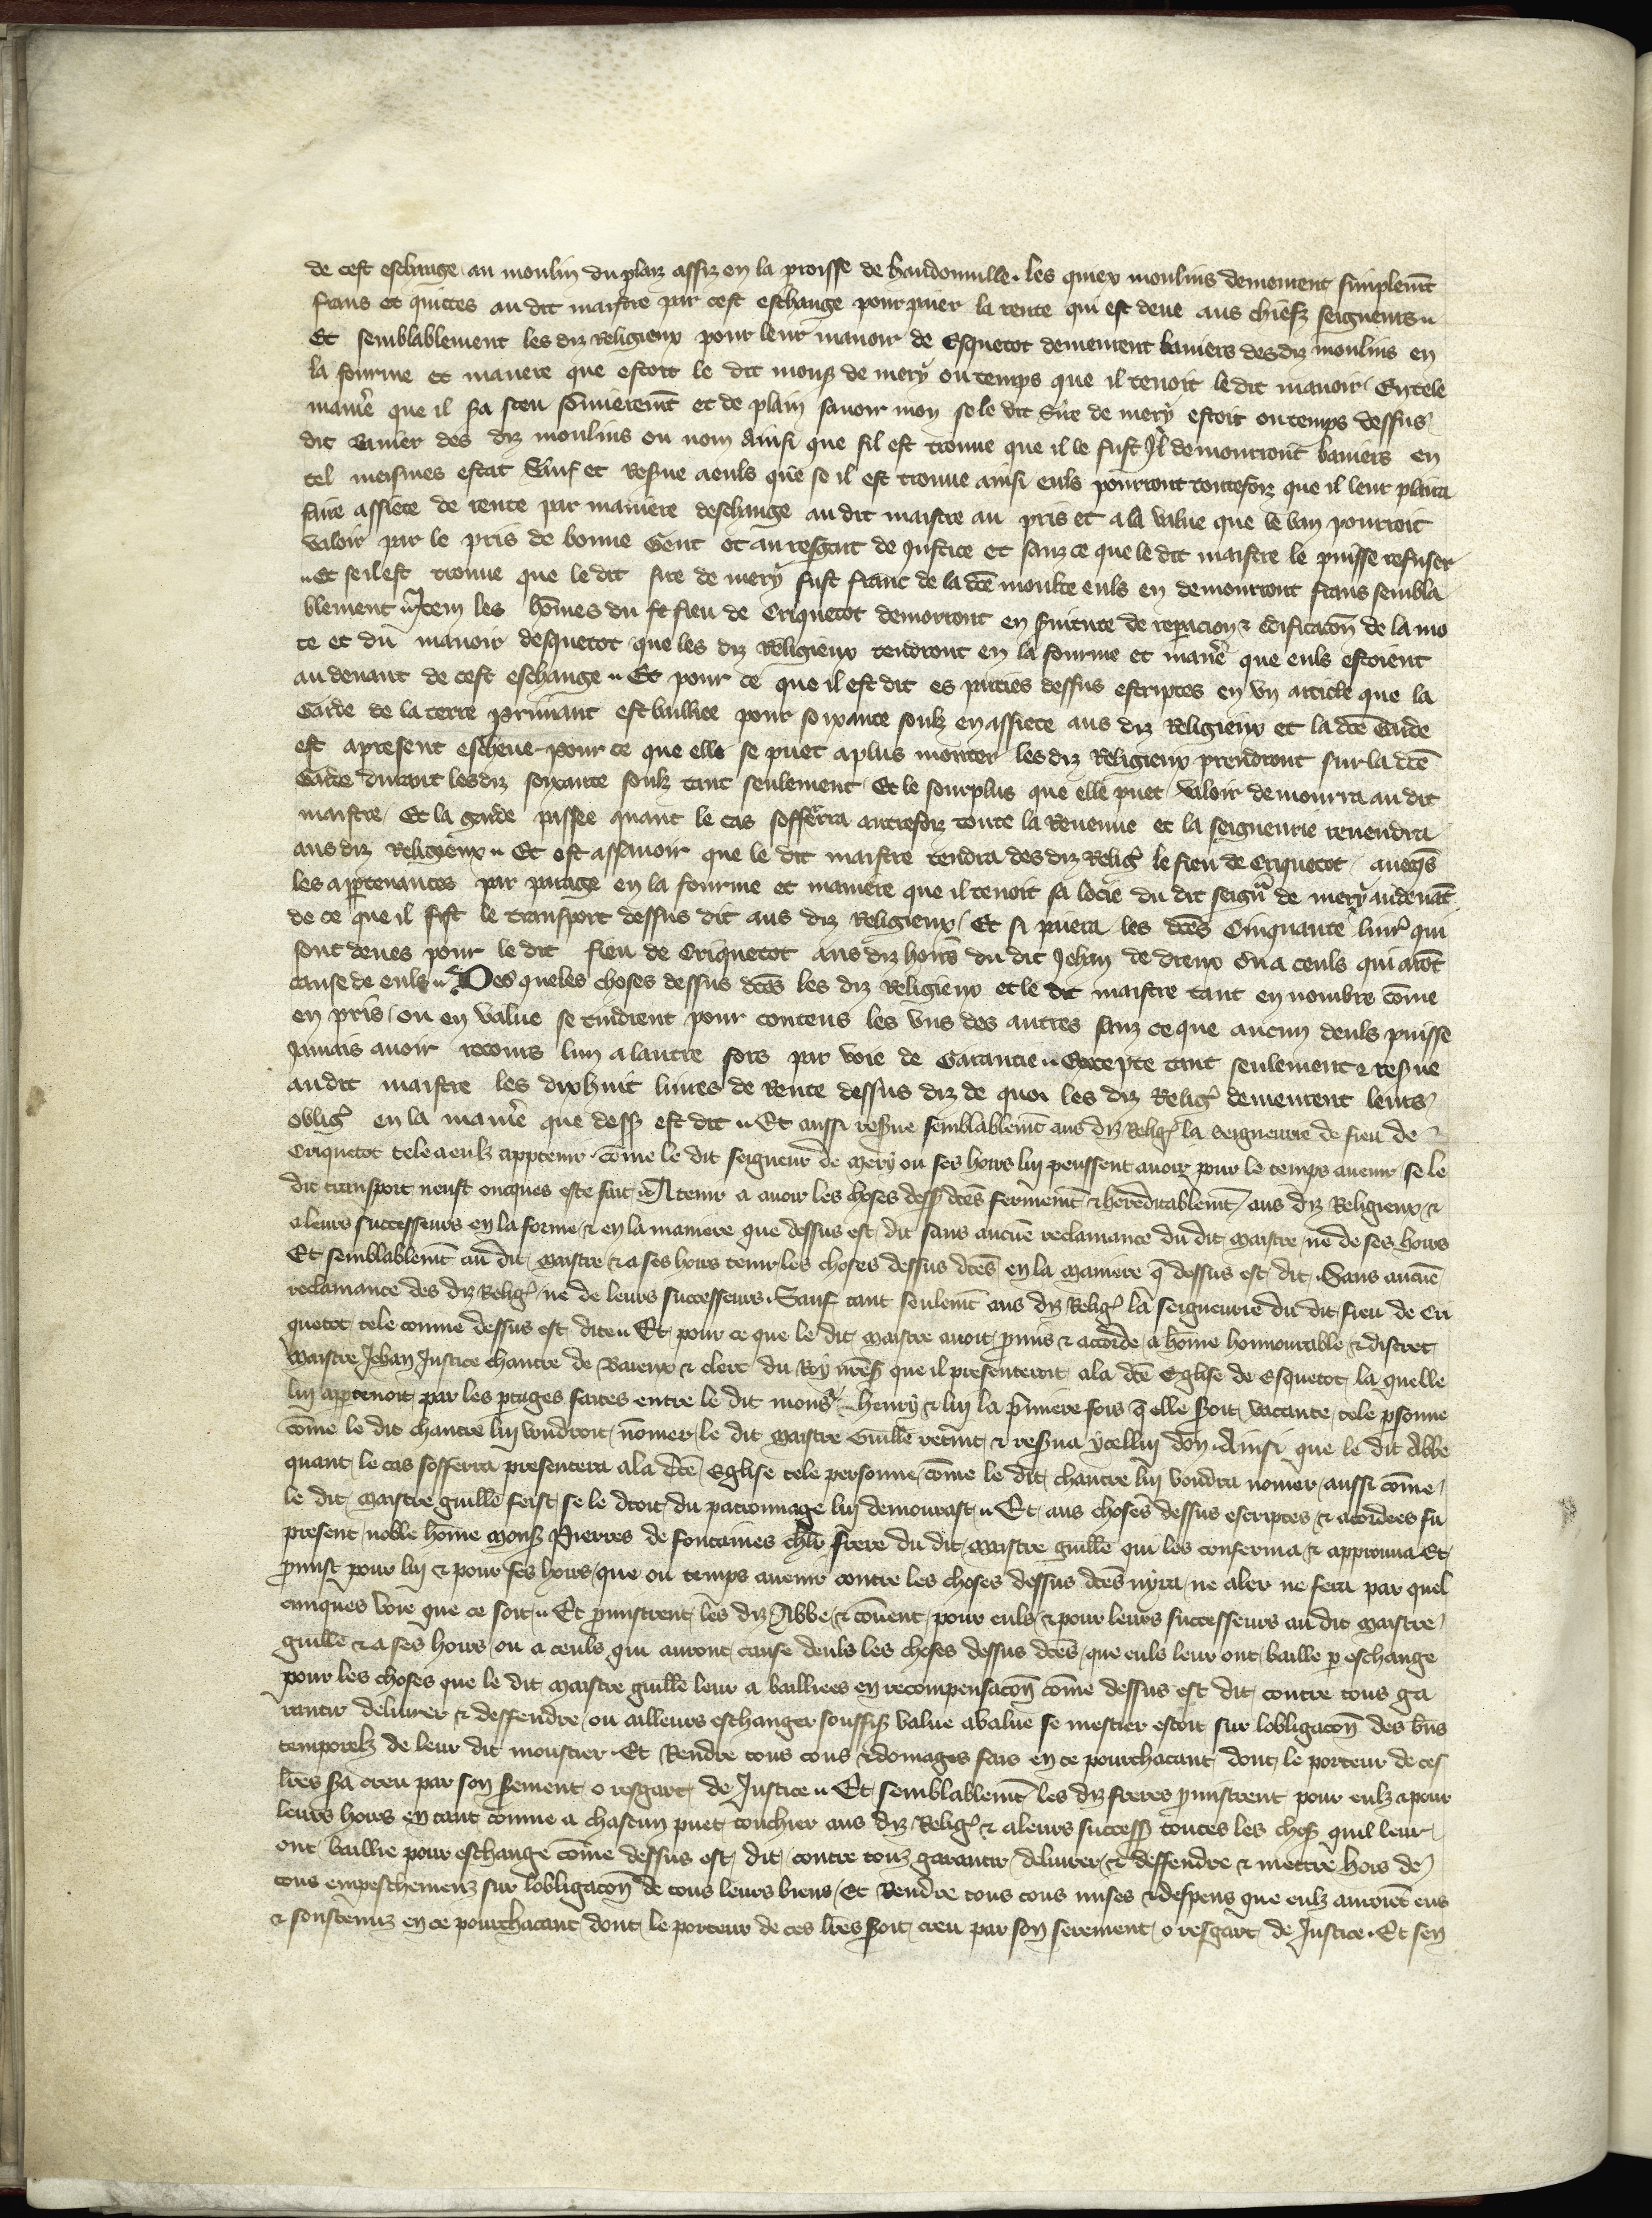 de cest eschange au moulin du plaiz assiz en la proisse de baudonuille . les quiex moulins demeurent simplemēt
frans et quittes au dit maistre par cest eschange pour paier la rente qui est deue aus chiefz seigneurs
Et semblablement les diz Religieux pour leur manoir de Esquetot demeurent baniers desdiz moulins en
la fourme et maniere que estoit le dit mons̄ de mery ou temps que il tenoit ledit manoir En tele
manīe que il s̄a sceu sōmieremēt et de plain sauoir mon se le dit Sire de mery estoit ou temps dessus
dit banier des diz moulins ou nom Ainsi que sil est trouue que il le fust Jl demourront baniers en
tel meismes estat Sauf et Res̄ue a euls que se il est trouue ainsi euls pourront toutesfoiz que il leur plaira
faire assiete de rente par maniere deschange au dit maistre au pris et a la value que le ban pourroit
valoir par le pris de bonne Gent et au resgart de Justice et sanz ce que le dit maistre le puisse refuser
Et se il est trouue que le dit sire de mery fust franc de la dc̄e moulte euls en demourront frans sembla
blement Jtem les hōmes du fieu de Criquetot demorront en s̄uitute de repacion & edificacōn de la mo
te et du manoir desquetot que les diz Religieux tendront en la fourme et manīe que euls estoient
au deuant de cest eschange Et pour ce que il est dit es parties dessus escriptes en vn article que la
Garde de la terre prinant est bailliee pour soixante soulz en assiete aus diz Religieux et la dc̄e Garde
est apresent escheue pour ce que elle se puet a plus monter les diz Religieux prendront sur la dc̄e
Garde durant lesdiz soixante soulz tant seulement Et le sourplus que elle puet valoir demourra au dit
maistre Et la garde passee quant le cas sofferra autrefoiz toute la Reuenue et la seigneurie reuendra
aus diz Religieux Et est assauoir que le dit maistre tendra des diz Relig̾ le fieu de Criquetot auecq̄s
les apptenances par parage en la fourme et maniere que il tenoit du dit seign̄r de mery au deuāt
de ce que il fist le transport dessus dit aus diz Religieux Et si paiera les dc̄es Cinquante liur̾ qui
sont deues pour le dit fieu de Criquetot aus diz hoirs du dit Jehan de dreux ou a ceuls qui aiōt
cause de euls Des queles choses dessus dc̄es les diz Religieux et le dit maistre tant en nombre cōme
en pris ou en value se tindrent pour contens les vns des autres sanz ce que aucun deuls puisse
Jamais auoir recours lun a lautre fors par voie de Garantie Excepte tant seulement & res̄ue
au dit maistre les dixhuit liures de Rente dessus diz de quoi les diz Relig̾ demeurent leurs
oblig̾ en la manīe que dess̄ est dit Et aussi res̄ue semblablemēt aus diz Relig̾ la seigneurie de fieu de
Criquetot tele a eulz apptenir cōme le dit seigneur de Mery ou ses hoirs lui peussent auoir pour le temps auenir se le
dit transport neust oncques este fait A tenir a auoir les choses dess̄ dc̄es fermemēt & hereditablemēt aus diz Religieux &
a leurs successeurs en la forme & en la maniere que dessus est dit sans aucūe reclamance du dit maistre ne de ses hoirs
Et semblablemēt au dit maistre & a ses hoirs tenir les choses dessus dc̄es en la maniere q̄ dessus est dit . Sans aucūe
reclamance des diz Relig̾ ne de leurs successeurs . Sauf tant seulemēt aus diz Relig̾ la seigneurie du dit fieu de Cri
quetot tele comme dessus est dite Et pour ce que le dit maistre auoit p̄mis & acorde a hōme honnourable & discret
Maistre Jehan Justice chantre de Baieux & clerc du Roy nr̄es̄ que il presenteroit a la dc̄e Eglise de Esquetot la quelle
lui apptenoit par les ptages faites entre le dit mons̄r henry & lui la p̄miere fois q̄ elle seroit vacante tele p̄sonne
cōme le dit chantre lui voudroit nōmer le dit maistre Guillē retīnt & res̄ua ycellui don . Ainsi que le dit Abbe
quant le cas sofferra presentera a la dc̄e Eglise tele personne cōme le dit chantre lui voudra nomer aussi cōme
le dit maistre guillē feist se le droit du patronnage lui demourast Et aus choses dessus escriptes & acordees fu
present noble hōme mons̄ Pierres de fontaines chlr̄ frere du dit maistre guillē qui les conferma & approuua Et
p̄mist pour lui & pour ses hoirs que ou temps auenir contre les choses dessus dc̄es nyra ne aler ne fera par quel
cunques voie que ce soit Et p̄mistrent les diz Abbe & cōuent pour euls & pour leurs successeurs au dit maistre
guillē & a ses hoirs ou a ceuls qui auront cause deuls les choses dessus dc̄es que euls leur ont baille p eschange
pour les choses que le dit maistre guillē leur a bailliees en recompensacōn cōme dessus est dit contre tous ga
rantir deliurer & deffendre ou ailleurs eschanger souffis̄ value a value se mestier estoit sur lobligacōn des b̄ns
temporelz de leur dit moustier Et Rendre tous cous & domages fais en ce pourchacant dont le porteur de ces
lr̄es s̄a creu par son s̄ement o resgart de Justice Et semblablemēt les diz freres p̄mistrent pour eulz & pour
leurs hoirs en tant comme a chascun puet touchier aus diz Relig̾ & a leurs success̄ toutes les chos̄ quil leur
ont baillie pour eschange cōme dessus est dit contre touz garantir deliurer & deffendre & mettre hors de
tous empeschemenz sur lobligacōn de tous leurs biens Et Rendre tous cous mises & despens que eulz auroiēt eus
& soustenuz en ce pourchacant dont le porteur de ces lr̄es soit creu par son serement o resgart de Justice . Et sen